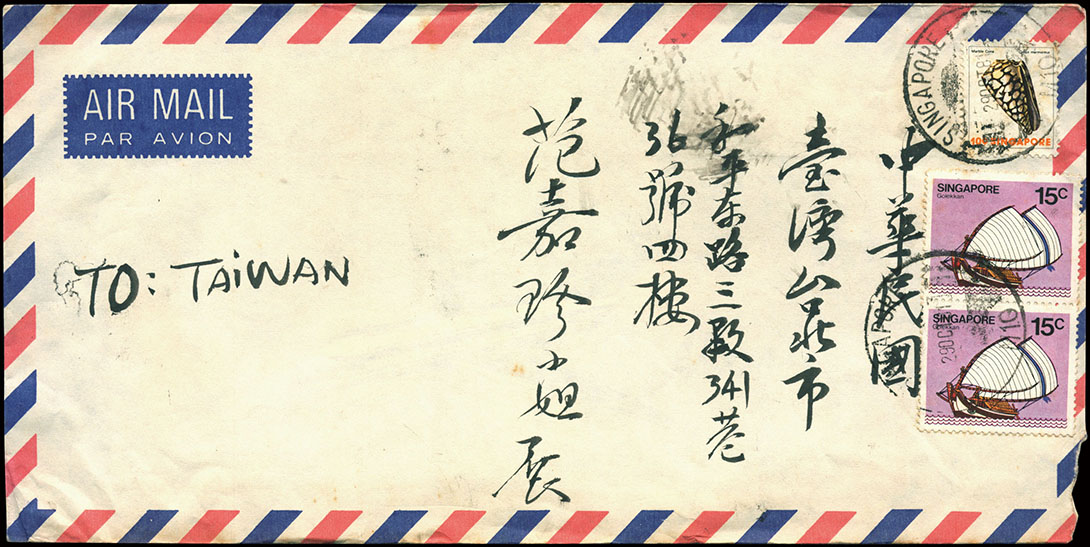 AIR MAIL
PAR AVION
TO: TAIWAN
中華民國
臺灣台北市
和平东路三段341巷
36號四樓
范嘉珍小姐展
SINGAPORE
Marble Cone
10c SINGAPORE
SINGAPORE 15c
Golekkan
SINGAPORE 15c
Golekkan